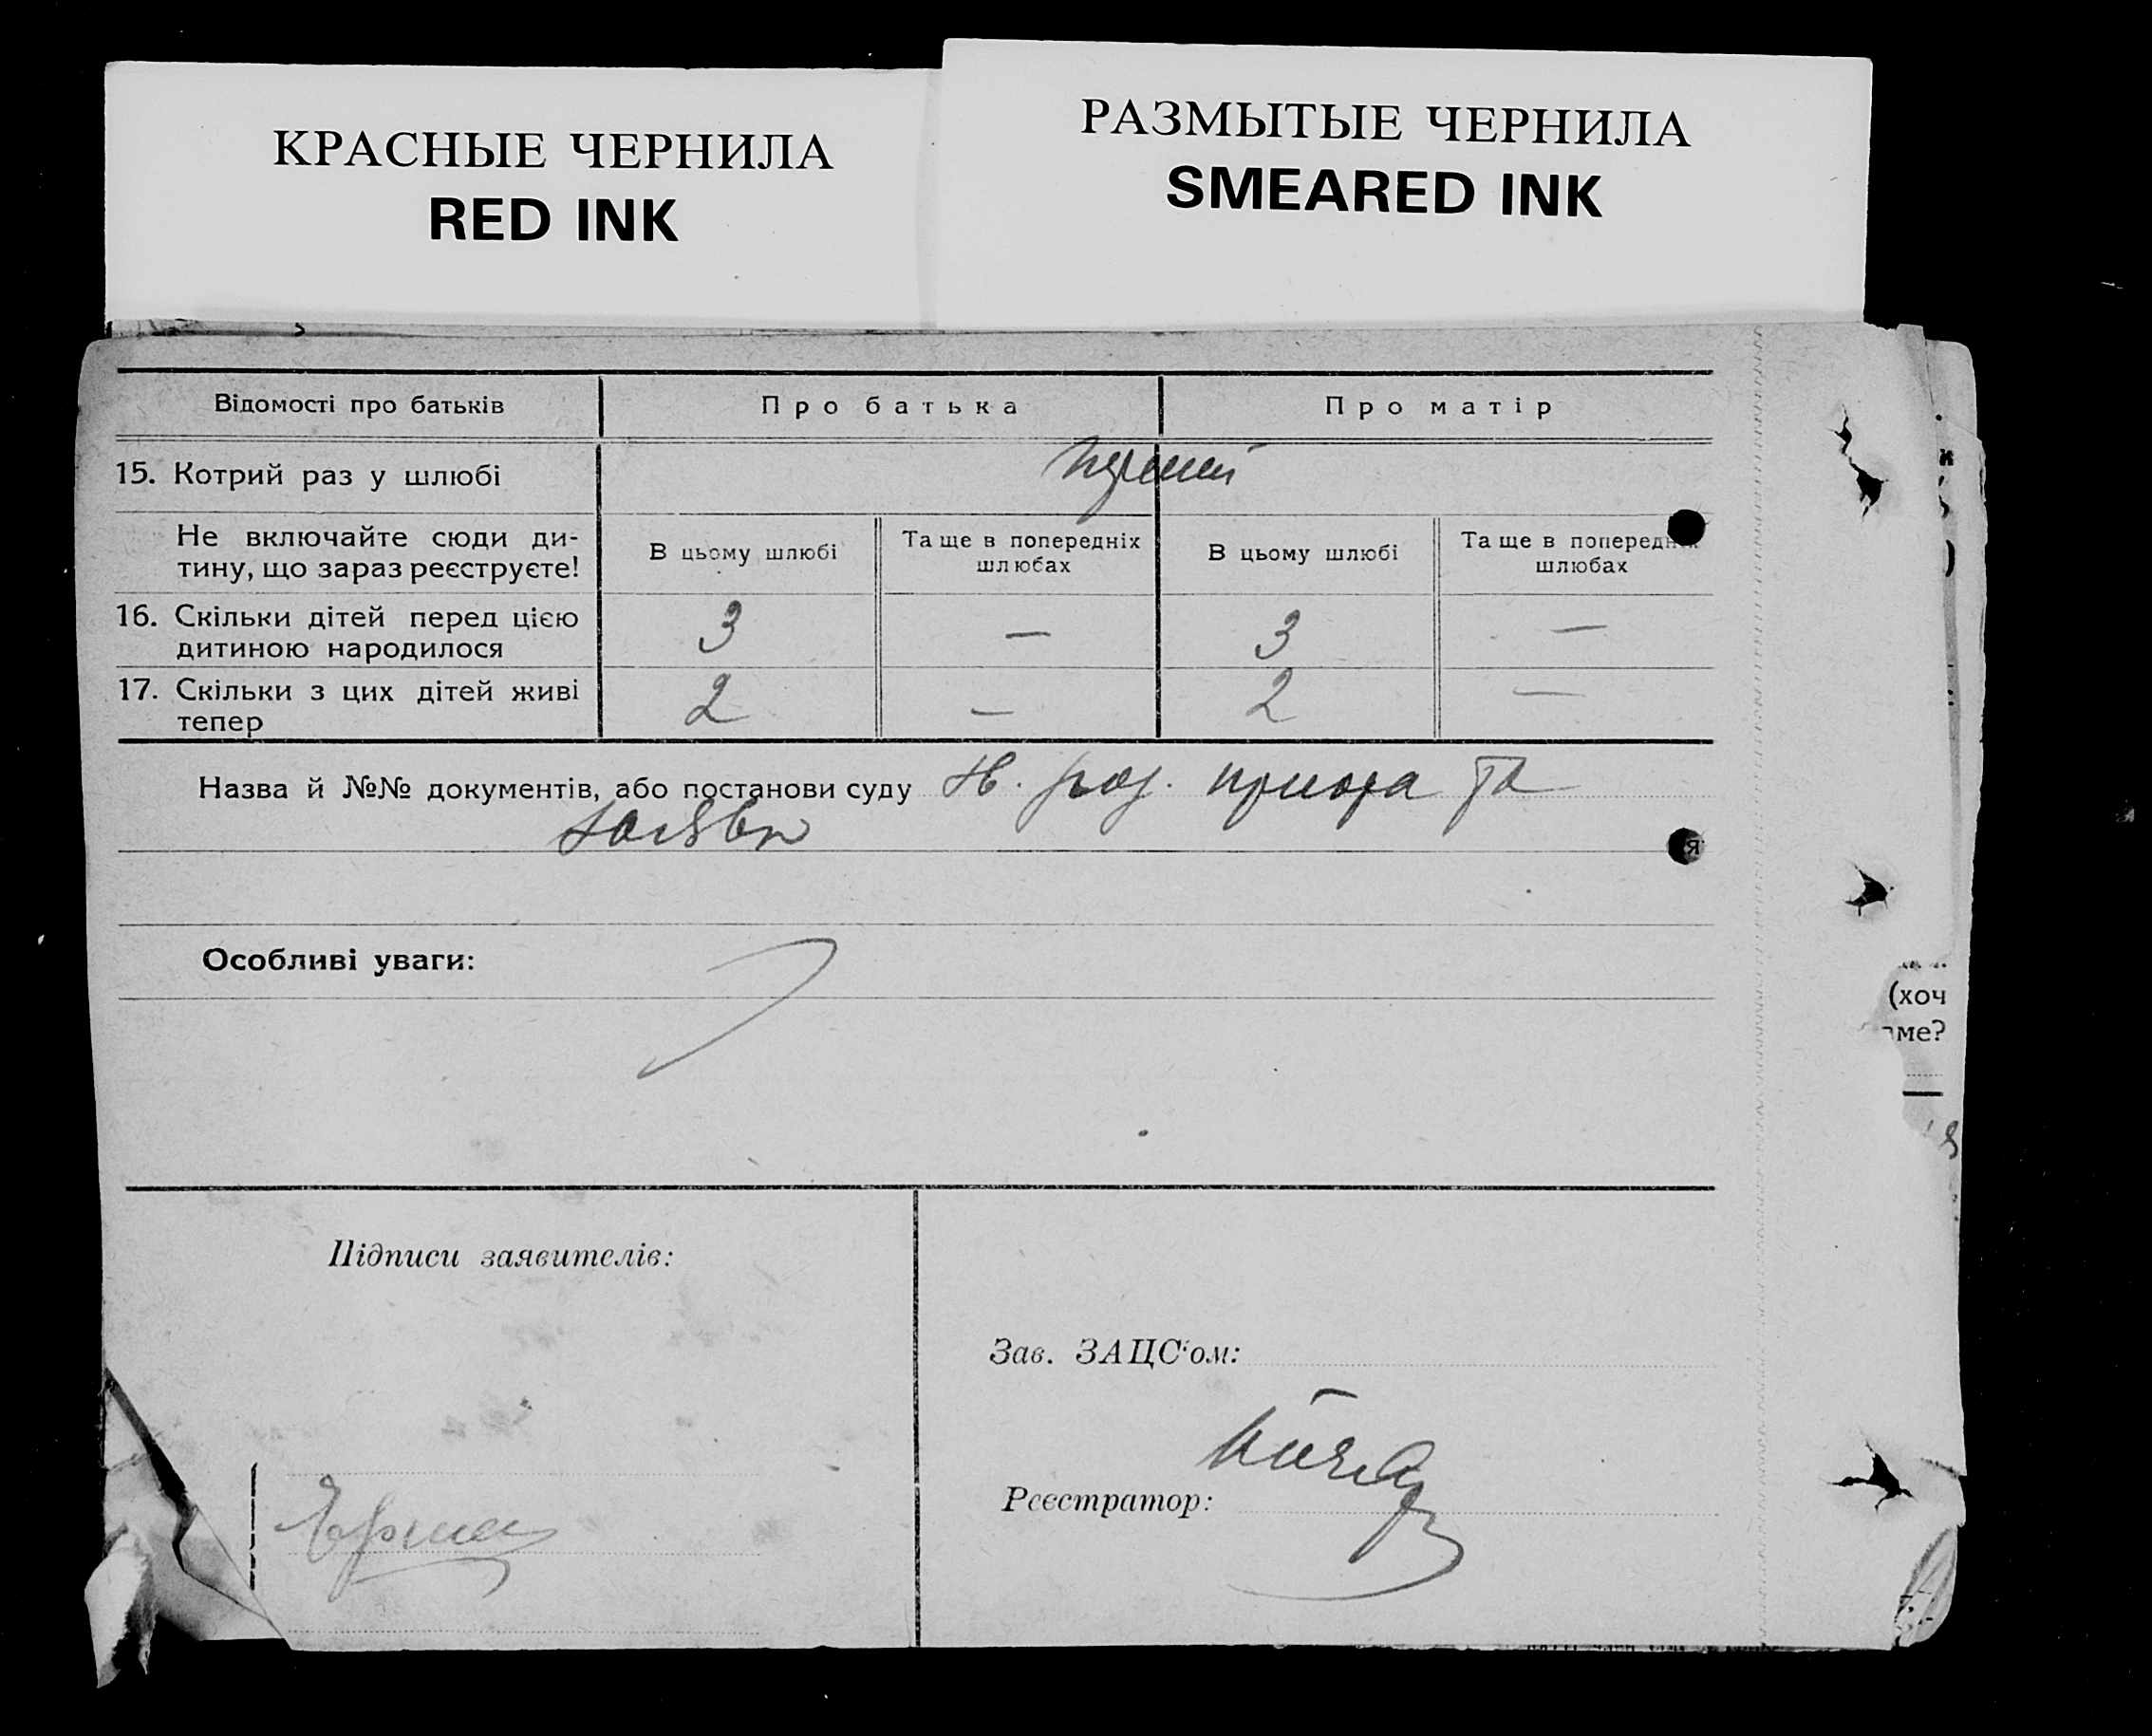 КРАСНЫЕ ЧЕРНИЛА
RED INK
РАЗМЫТЫЕ ЧЕРНИЛА
SMEARED INK
Відомості про батьків
Про батька
Про матір
15. Котрий раз у шлюбі
перший
Не включайте сюди ди-
тину, що зараз реєструєте!
В цьому шлюбі
Та ще в попередніх
шлюбах
В цьому шлюбі
Та ще в поперед
шлюбах
16. Скільки дітей перед цією
дитиною народилося
3
—
3
—
17. Скільки з цих дітей живі
тепер
2
—
2
—
Назва й №№ документів, або постанови суду
та
Особливі уваги:
Підписи заявителів:
Зав. ЗАЦС'ом:
Реєстратор:
(хоч
ме?